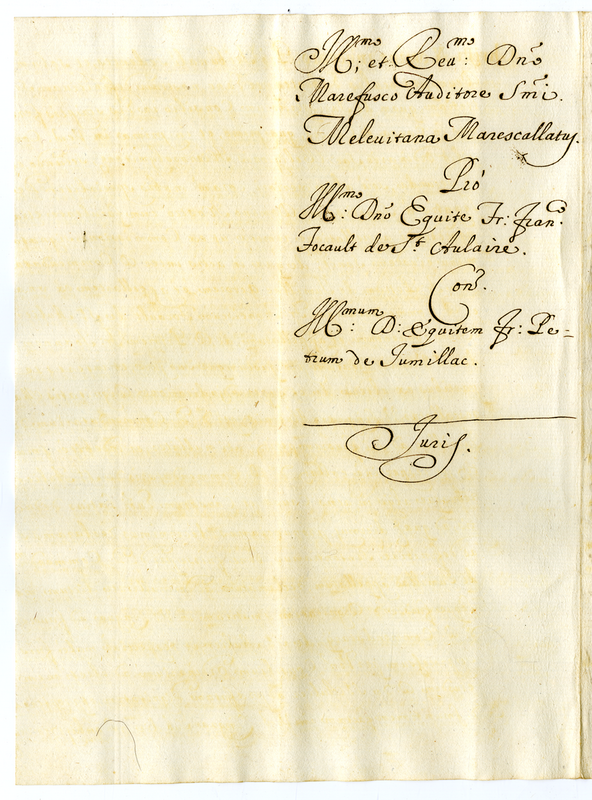 Ill:mo et Reu:mo Dno
Marefusco Auditore Smi.
Meleuitana Marescallatus.
Pró
Ill:mo Dno Equite Fr: Fran:co
Focault de St. Aulaire.
Con.
Ill:mum D: Equitem Fr: Pe=
trum de Jumillac.
Juris.